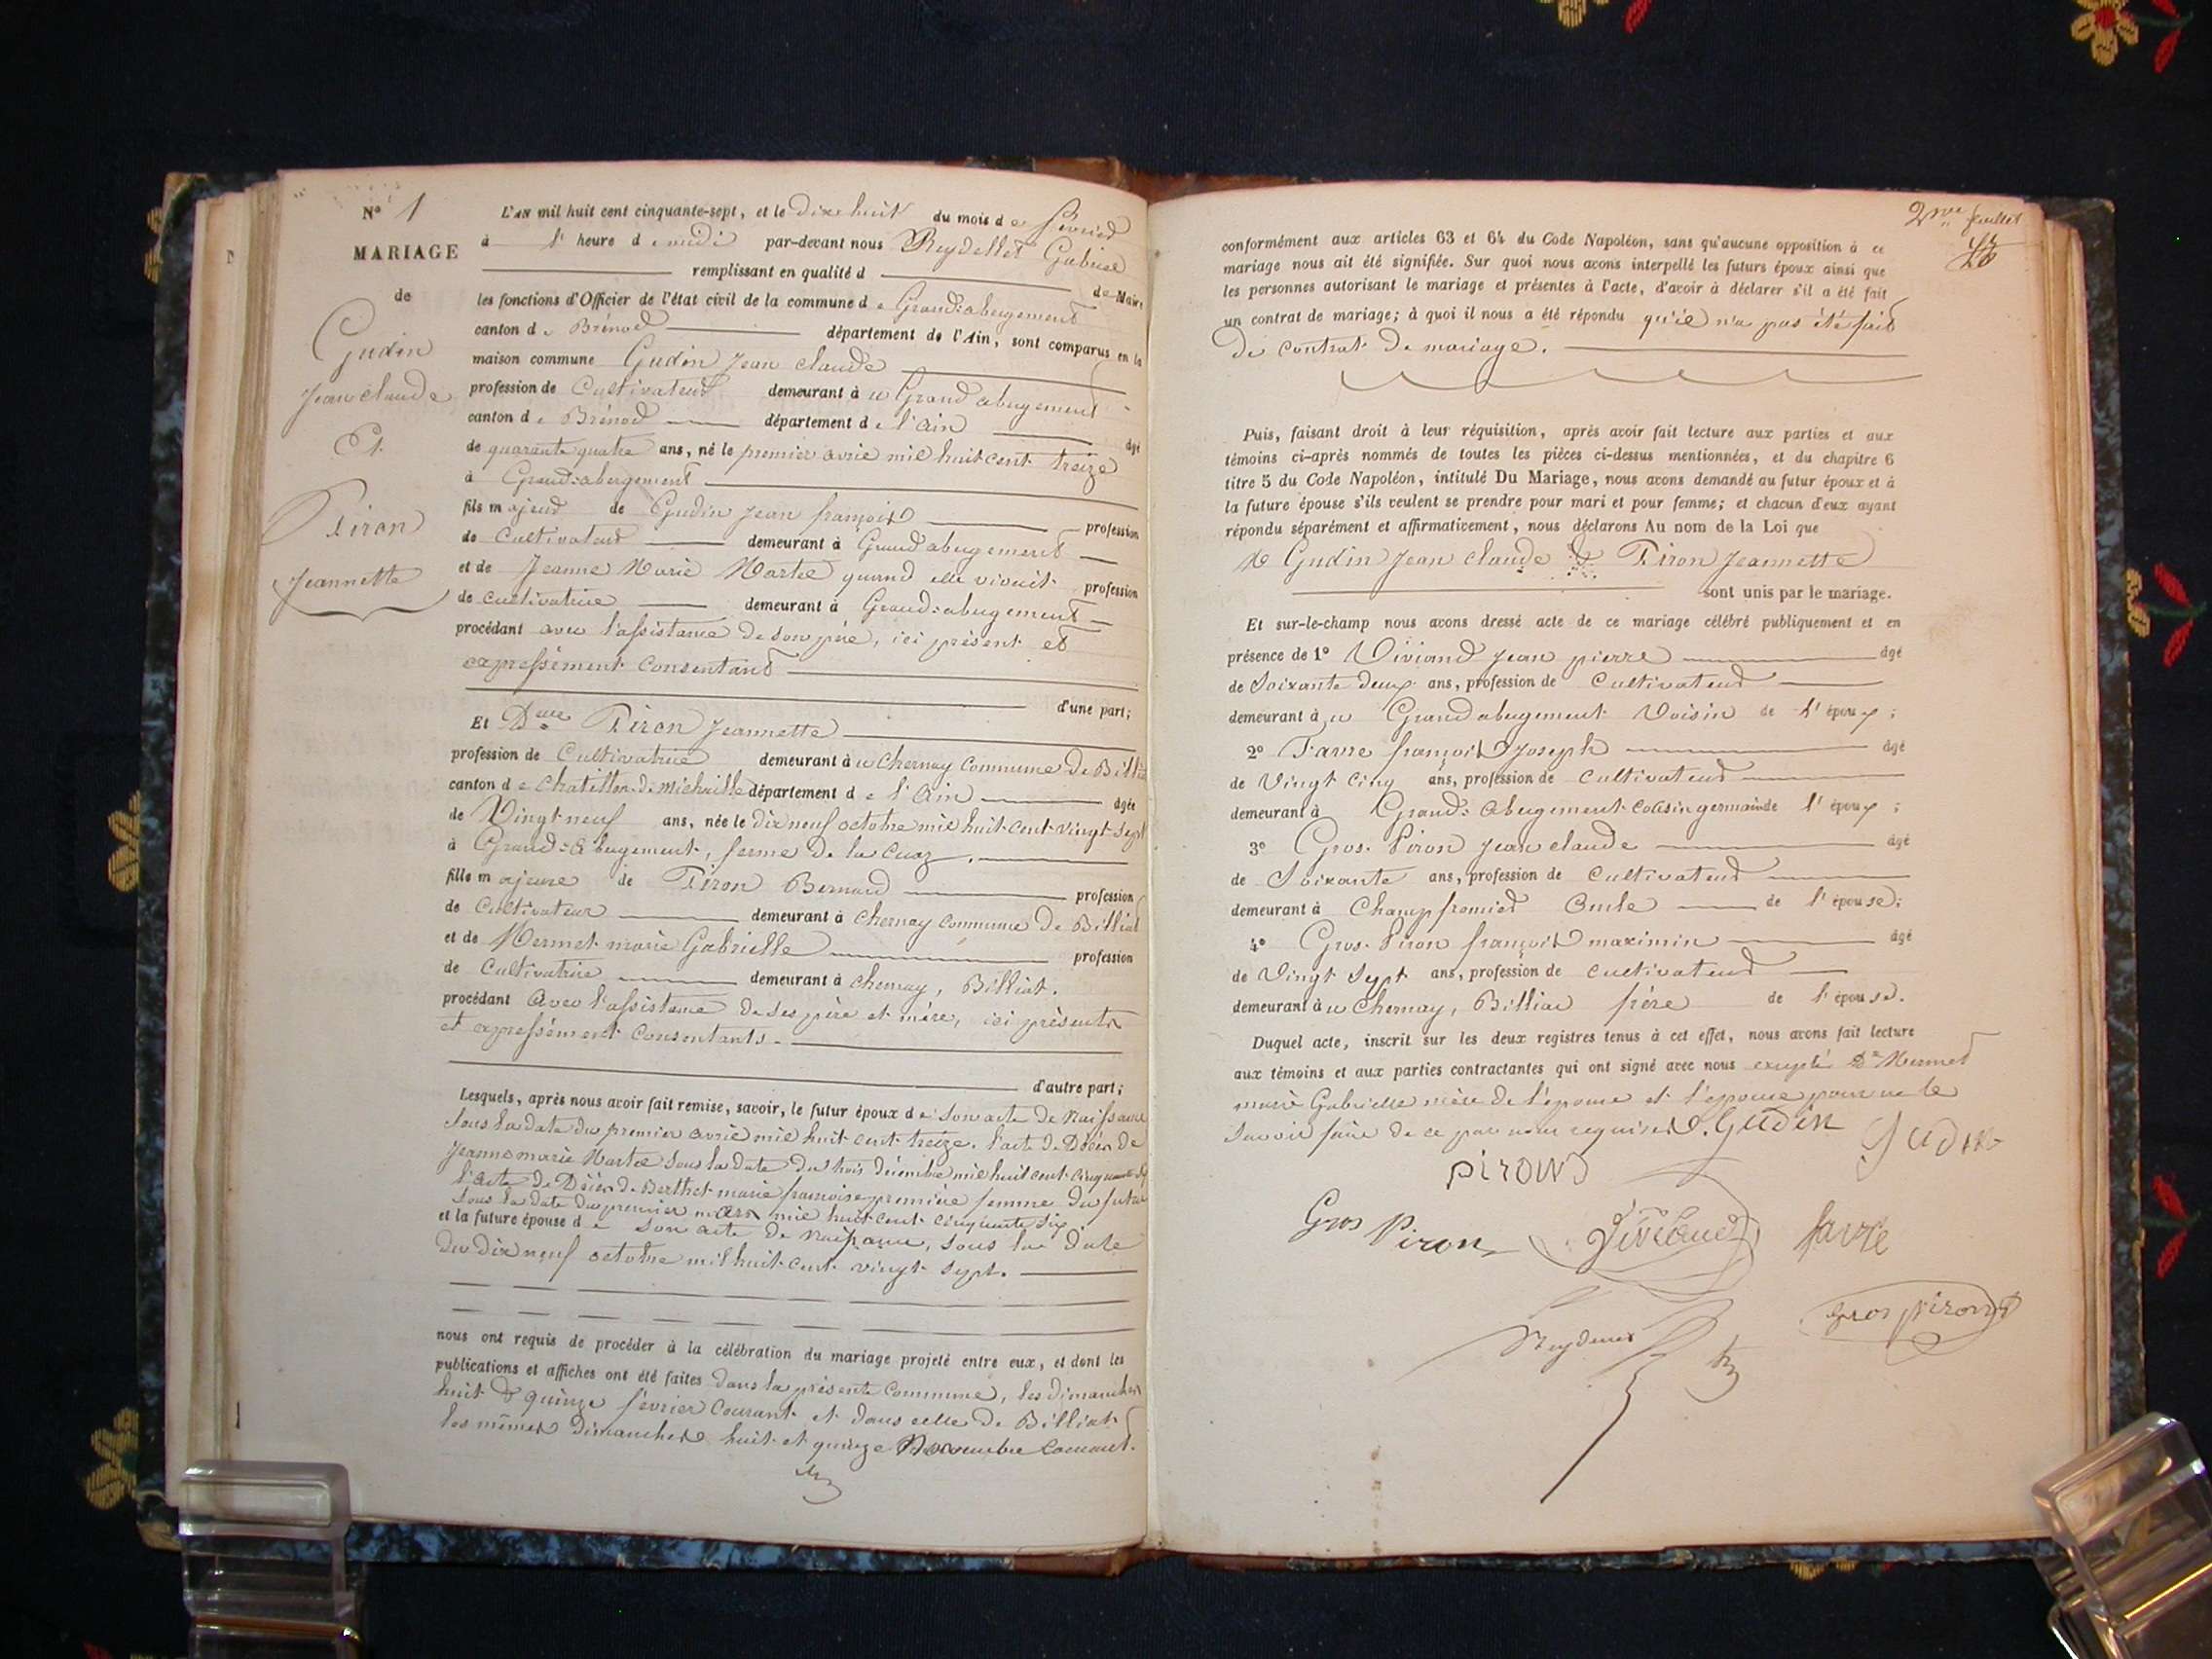 N° 1
MARIAGE
de
Gudin
Jean Claude
Et
Piron
Jeannette
L'AN mil huit cent cinquante-sept, et le dix huit du mois de février
à l' heure de midi par-devant nous Reydellet Gabriel
remplissant en qualité d de Maire
les fonctions d'Officier de l'état civil de la commune de Grand=abergement
canton de Brénod département de l'Ain, sont comparus en la
maison commune Gudin Jean Claude
profession de Cultivateur demeurant à u Grand abergement
canton de Brénod département de l'ain âgé
de quarante quatre ans, né le premier avril mil huit cent treize
à Grand=abergement
fils majeur de Gudin Jean françois profession
de Cultivateur demeurant à Grand abergement
et de Jeanne Marie Martel quand elle vivait profession
de cultivatrice demeurant à Grand=abergement
procédant avec l'assistance de son père, ici présent et
expressément Consentant
d'une part;
Et Dlle Piron Jeannette
profession de Cultivatrice demeurant à u Chernay Commune de Billiat
canton de Chatillon-de-Michaille département de l'Ain âgée
de Vingt neuf ans, née le dix neuf octobre mil huit cent vingt Sept
à Grand=Abergement, ferme de la Cuaz.
fille majeure de Piron Bernard profession
de Cultivateur demeurant à Chernay Commune de Billiat
et de Mermet marie Gabrielle profession
de Cultivatrice demeurant à Chernay, Billiat.
procédant Avec l'assistance de ses père et mère, ici présents
et expressément Consentants.
d'autre part;
Lesquels, après nous avoir fait remise, savoir, le futur époux de Son acte de Naissance
Sous la date du premier avril mil huit cent treize. l'acte de Décès de
Jeanne marie Martel Sous la date du trois décembre mil huit cent
l'acte de Décès de Berthet marie françoise première femme du futur
Sous la date du premier mars mil huit cent cinquante six
et la future épouse de son acte de Naissance, sous la date
du dix neuf octobre mil huit cent vingt sept.
nous ont requis de procéder à la célébration du mariage projeté entre eux, et dont les
publications et affiches ont été faites Dans la présente Commune, les dimanches
huit & quinze février Courant et dans celle de Billiat
les mêmes Dimanches huit et quinze Novembre Courant.
2me feuillet
conformément aux articles 63 et 64 du Code Napoléon, sans qu'aucune opposition à ce
mariage nous ait été signifiée. Sur quoi nous avons interpellé les futurs époux ainsi que
les personnes autorisant le mariage et présentes à l'acte, d'avoir à déclarer s'il a été fait
un contrat de mariage; à quoi il nous a été répondu qu'il n'a pas été fait
de Contrat de mariage.
Puis, faisant droit à leur réquisition, après avoir fait lecture aux parties et aux
témoins ci-après nommés de toutes les pièces ci-dessus mentionnées, et du chapitre 6
titre 5 du Code Napoléon, intitulé Du Mariage, nous avons demandé au futur époux et à
la future épouse s'ils veulent se prendre pour mari et pour femme; et chacun d'eux ayant
répondu séparément et affirmativement, nous déclarons Au nom de la Loi que
Gudin Jean Claude & Piron Jeannette
sont unis par le mariage.
Et sur-le-champ nous avons dressé acte de ce mariage célébré publiquement et en
présence de 1° Viviand Jean pierre âgé
de Soixante deux ans, profession de Cultivateur
demeurant à u Grand abergement Voisin de l'époux;
2° Favre françois Joseph âgé
de Vingt Cinq ans, profession de Cultivateur
demeurant à Grand=Abergement Cousin germain de l'époux;
3° Gros-Piron Jean Claude âgé
de Soixante ans, profession de Cultivateur
demeurant à Champfromier Oncle de l'épouse;
4° Gros-Piron françois maximin âgé
de Vingt Sept ans, profession de Cultivateur
demeurant à u Chernay, Billiat frère de l'épouse.
Duquel acte, inscrit sur les deux registres tenus à cet effet, nous avons fait lecture
aux témoins et aux parties contractantes qui ont signé avec nous excepté De Mermet
marie Gabrielle mère de l'épouse et l'épouse pour ne le
Savoir faire de ce par nous requises. Gudin Gudin
piron
Gros Piron Viviand favre
Reydellet Gros piron